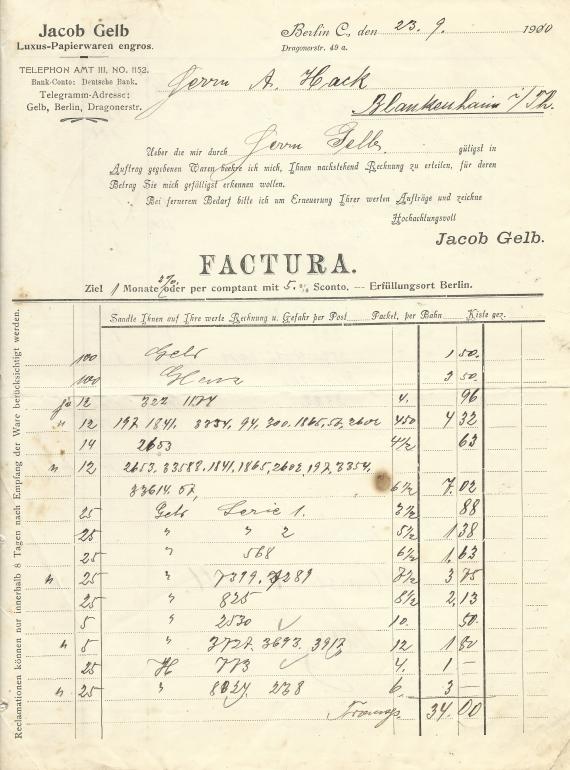 Jacob Gelb
Luxus-Papierwaren engros.
TELEPHON AMT III, NO. 1152.
Bank-Conto: Deutsche Bank.
Telegramm-Adresse:
Gelb, Berlin, Dragonerstr.
Berlin C., den 23. 9. 1900
Dragonerstr. 49 a.
Herrn A. Hack
Blankenhain i/Th.
Ueber die mir durch Herrn Gelb gütigst in
Auftrag gegebenen Waren beehre ich mich, Ihnen nachstehend Rechnung zu erteilen, für deren
Betrag Sie mich gefälligst erkennen wollen.
Bei fernerem Bedarf bitte ich um Erneuerung Ihrer werten Aufträge und zeichne
Hochachtungsvoll
Jacob Gelb.
FACTURA.
Ziel 1 Monate 2% oder per comptant mit 5 % Sconto. — Erfüllungsort Berlin.
Sandte Ihnen auf Ihre werte Rechnung u. Gefahr per Post Packet, per Bahn Kiste gez.
100 Gelb 1 50.
100 3 50.
12 322 1174 4. 96
" 12 197. 1841. 3354, 94, 300. 1865, 57, 2602 450 4 32
14 2653 4½ 63
" 12 2653, 33588, 1841, 1865, 2602, 197, 3354,
33614. 57, 6½ 7.02
25 Gelb Serie 1. 3½ 88
25 " " 2 5½ 1 38
25 " 568 6½ 1.63
" 25 " 7399. 7289 7½ 3 75
25 " 825 8½ 2.13
5 " 2530 10. 50.
" 5 " 3727. 3693. 3917 12 1 80
25 H 773 4. 1 —
" 25 " 8024 278 6. 3 —
34.00
Reclamationen können nur innerhalb 8 Tagen nach Empfang der Ware berücksichtigt werden.